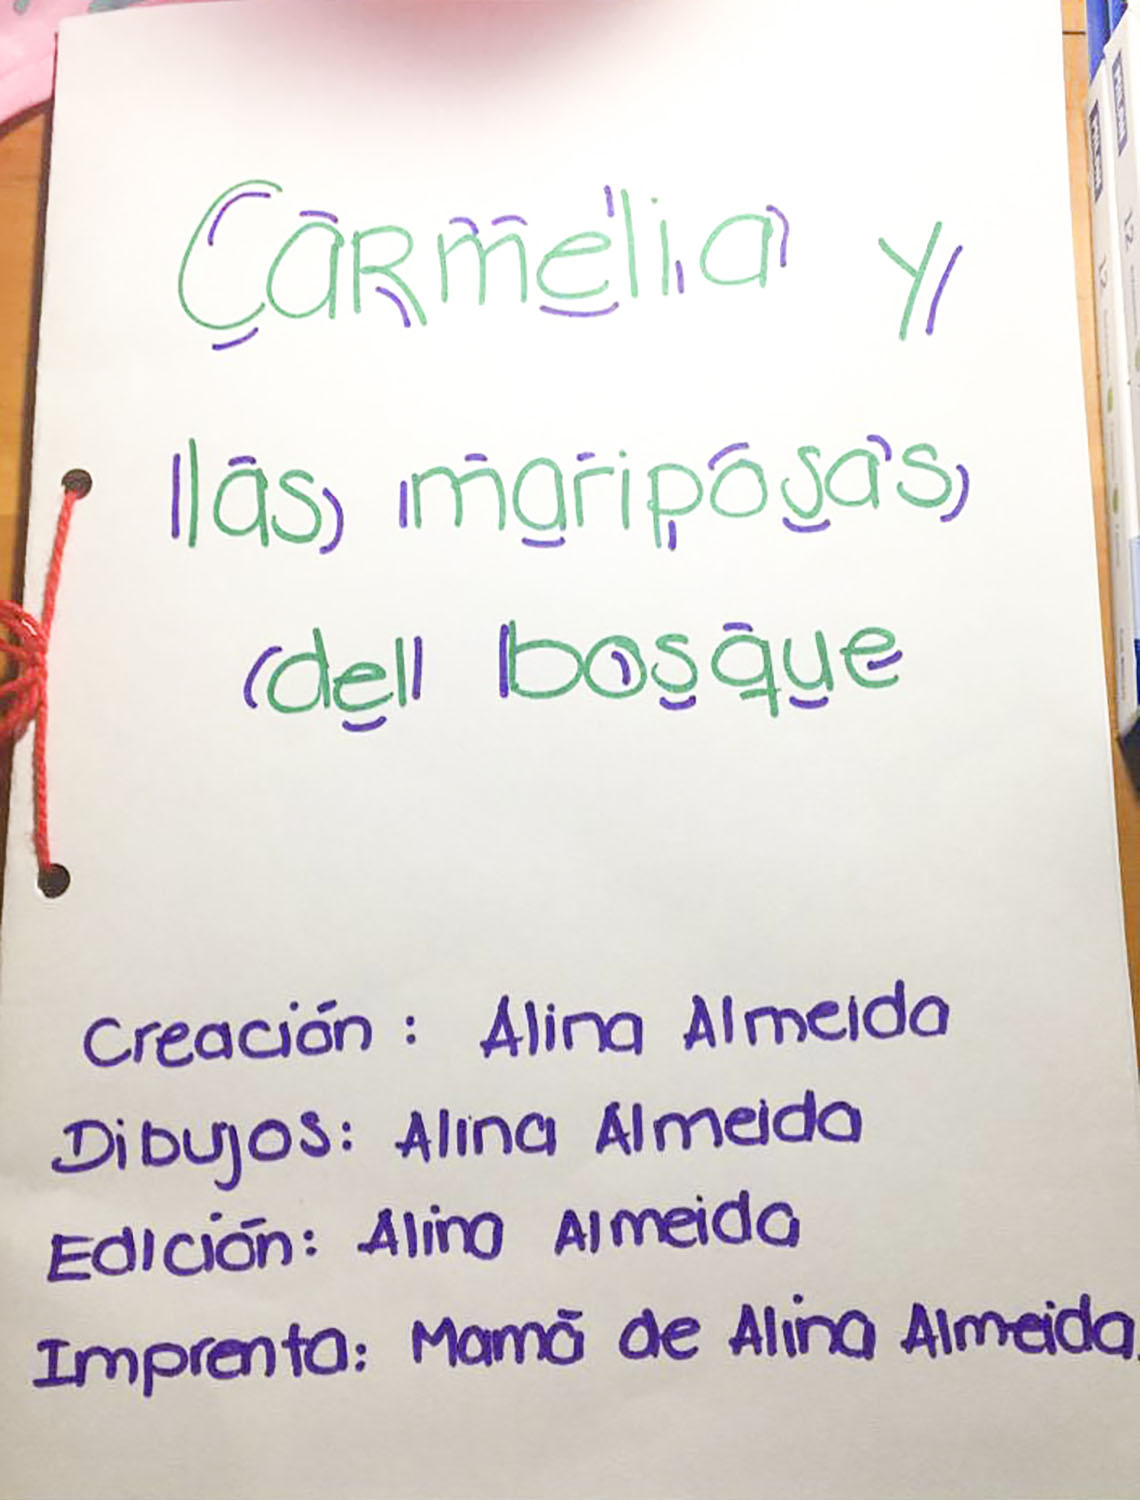 Carmelia y
las mariposas
del bosque
Creación: Alina Almeida
Dibujos: Alina Almeida
Edición: Alina Almeida
Imprenta: Mamá de Alina Almeida.
MILAN
MILAN
12
12